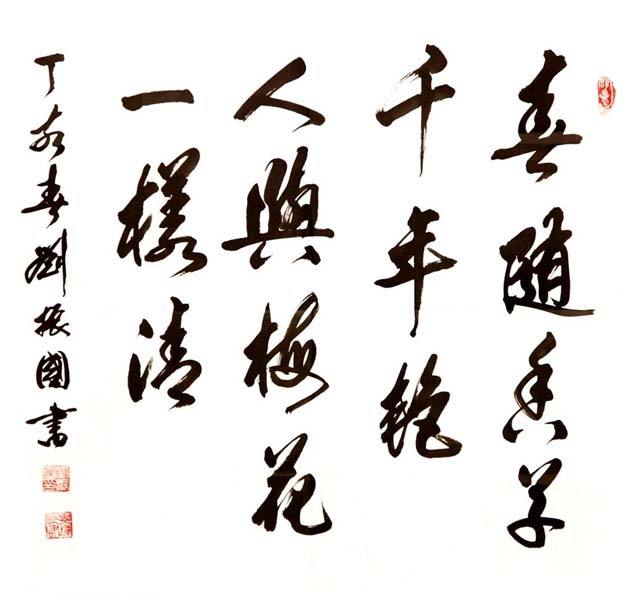 春随香草
千年艳
人與梅花
一樣清
丁亥春劉振國書